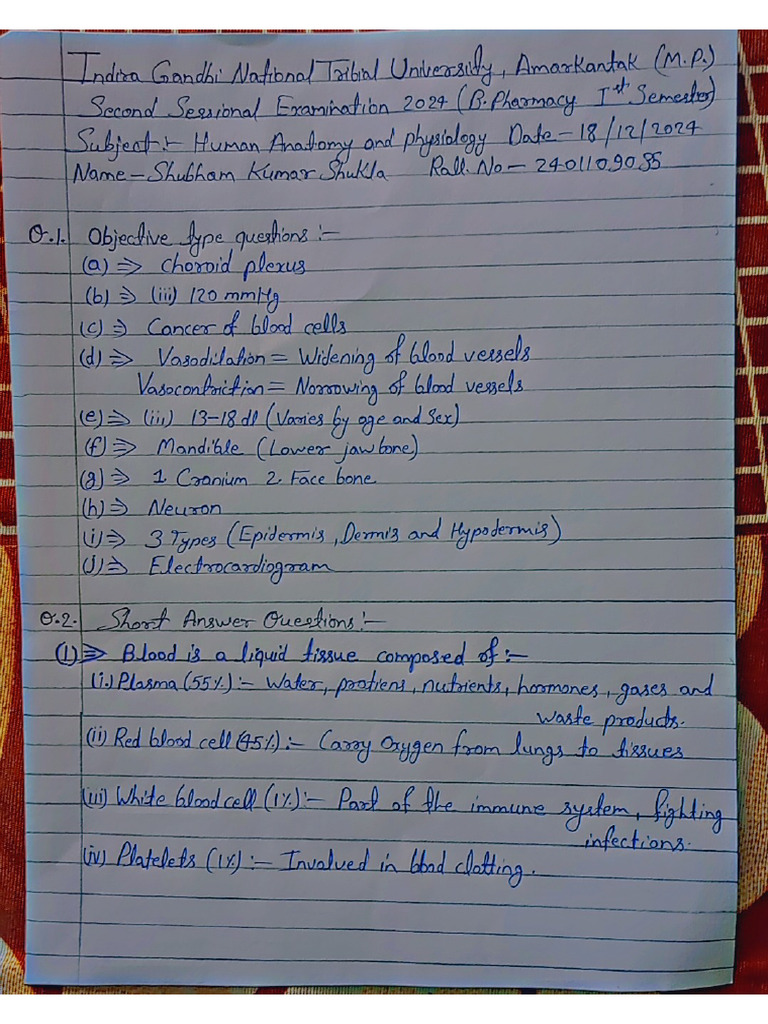 Indira Gandhi National Tribal University, Amarkantak (M.P.)
Second Sessional Examination 2024 (B.Pharmacy Ist Semester)
Subject:- Human Anatomy and physiology Date - 18/12/2024
Name - Shubham Kumar Shukla Roll.No - 2401109085
Q.1. Objective type questions :-
(a) ⇒ choroid plexus
(b) ⇒ (iii) 120 mmHg
(c) ⇒ Cancer of blood cells
(d) ⇒ Vasodilation = Widening of blood vessels
Vasocontriction = Norrowing of blood vessels
(e) ⇒ (iii) 13-18 dl (Varies by age and sex)
(f) ⇒ Mandible (Lower jaw bone)
(g) ⇒ 1. Cranium 2. Face bone
(h) ⇒ Neuron
(i) ⇒ 3 Types (Epidermis, Dermis and Hypodermis)
(J) ⇒ Electrocardiogram
Q.2. Short Answer Questions:-
(1) ⇒ Blood is a liquid tissue composed of :-
(i.) Plasma (55%) :- Water, protiens, nutrients, hormones, gases and
waste products.
(ii) Red blood cell (45%) :- Carry Oxygen from lungs to tissues
(iii) White blood cell (1%) :- Part of the immune system, fighting
infections.
(iv) Platelets (1%) :- Involved in blood clotting.